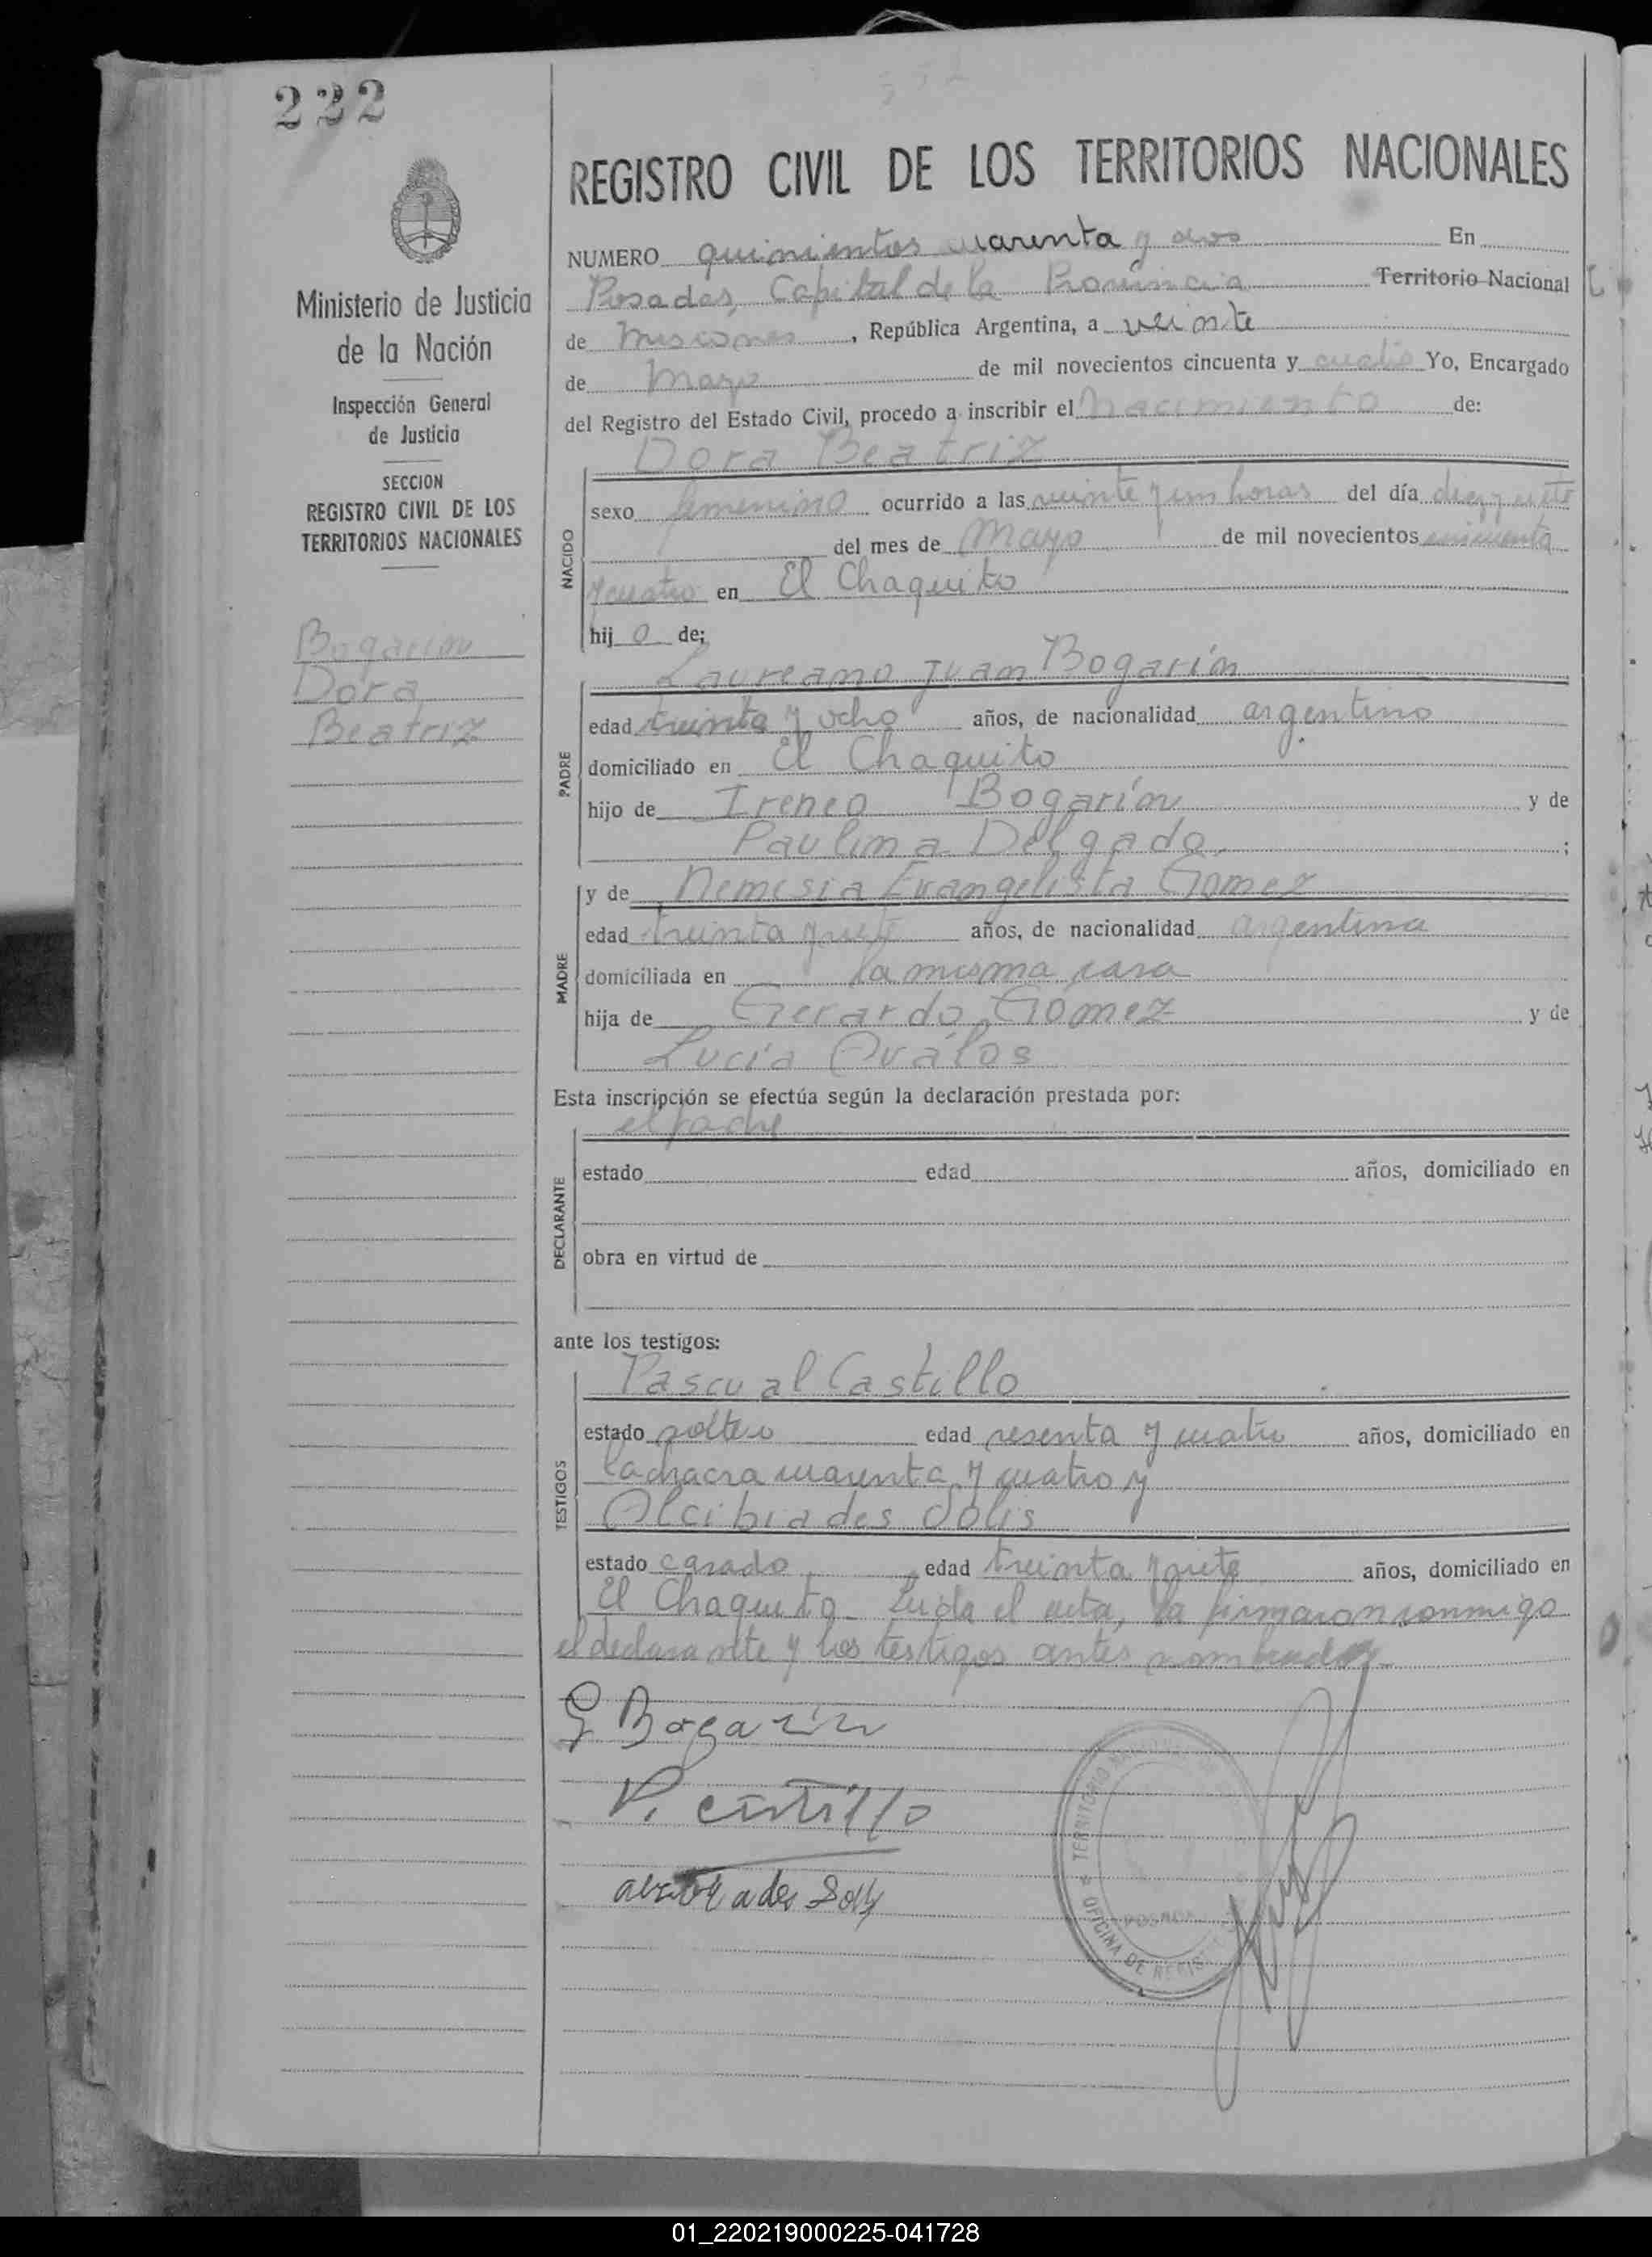 222
Ministerio de Justicia
de la Nación
Inspección General
de Justicia
SECCION
REGISTRO CIVIL DE LOS
TERRITORIOS NACIONALES
Bogarín
Dora
Beatriz
REGISTRO CIVIL DE LOS TERRITORIOS NACIONALES
NUMERO quinientos cuarenta y dos En
Posadas, Capital de la Provincia Territorio Nacional
de Misiones, República Argentina, a veinte
de Mayo de mil novecientos cincuenta y cuatro Yo, Encargado
del Registro del Estado Civil, procedo a inscribir el nacimiento de:
Dora Beatriz
NACIDO
sexo femenino ocurrido a las veinte y un horas del día diez y siete
del mes de Mayo de mil novecientos cincuenta
y cuatro en El Chaquito
hij o de;
Laureano Juan Bogarín
PADRE
edad treinta y ocho años, de nacionalidad argentino
domiciliado en El Chaquito
hijo de Ireneo Bogarín y de
Paulina Delgado ;
MADRE
y de Nemesia Evangelista Gomez
edad treinta y siete años, de nacionalidad argentina
domiciliada en la misma casa
hija de Gerardo Gómez y de
Lucía Ovalos
Esta inscripción se efectúa según la declaración prestada por:
el padre
DECLARANTE
estado edad años, domiciliado en
obra en virtud de
ante los testigos:
Pascual Castillo
TESTIGOS
estado soltero edad sesenta y cuatro años, domiciliado en
la chacra cuarenta y cuatro y
Alcibiades Solis
estado casado edad treinta y siete años, domiciliado en
El Chaquito. Leida el acta, la firmaron conmigo
el declarante y los testigos antes nombrados
Bogarín
P. Castillo
TERRITORIO
OFICINA DE REGIS
POSADAS
01_220219000225-041728